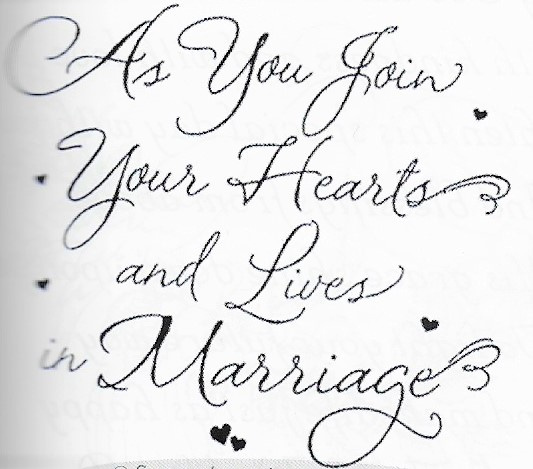 As You Join
Your Hearts
and Lives
in Marriage